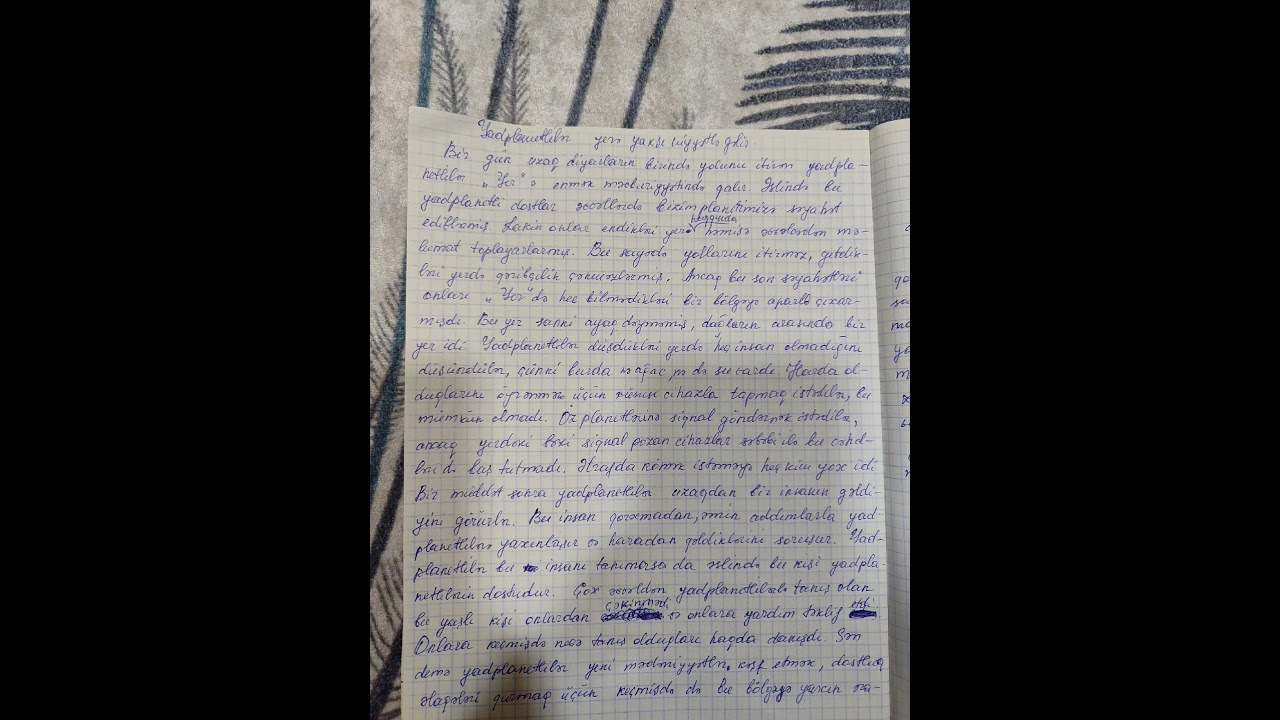 Yadplanetlilər yerə yaxşı niyyətlə gəlir.
Bir gün uzaq diyarların birində yolunu itirən yadpla-
netlilər "Yer"ə enmək məcburiyyətində qalır. Əslində bu
yadplanetli dostlar əvvəllərdə bizim planetimizə səyahət
edilbəmiş Lakin onlar endikləri yerə haqqında həmişə əvvəlcədən mə-
lumat toplayarlarmış. Bu sayədə yollarını itirməz, getdik-
ləri yerdə qəribçilik çəkməzlərmiş. Ancaq bu son səyahətləri
onları "Yer"də heç bilmədikləri bir bölgəyə aparıb çıxar-
mışdı. Bu yer sanki ayaq dəyməmiş, dağların arasında bir
yer idi Yadplanetlilər düşdükləri yerdə heç insan olmadığını
düşündülər, çünki burda nə ağac, nə də su vardı. Harda ol-
duqlarını öyrənmək üçün cihazla tapmaq istədilər, bu
mümkün olmadı. Öz planetlərinə siqnal göndərmək istədilər,
ancaq yerdəki bəzi siqnal pozan cihazlar səbəbi ilə bu cəhd-
ləri də baş tutmadı. Ətrafda kömək istəməyə heç kim yox idi
Bir müddət sonra yadplanetlilər uzaqdan bir insanın gəldi-
yini görürlər. Bu insan qorxmadan, əmin addımlarla yad-
planetlilərə yaxınlaşır və haradan gəldiklərini soruşur. Yad-
planetlilər bu insanı tanımırsa da əslində bu kişi yadpla-
netlilərin dostudur. Çox əvvəldən yadplanetlilərlə tanış olan
bu yaşlı kişi onlardan çəkinmədi və onlara yardım təklif etdi
Onlara keçmişdə necə tanış olduqları haqda danışdı. Sən
demə yadplanetlilər yeni mədəniyyətlər kəşf etmək, dostluq
əlaqələri qurmaq üçün keçmişdə də bu bölgəyə yaxın əra-